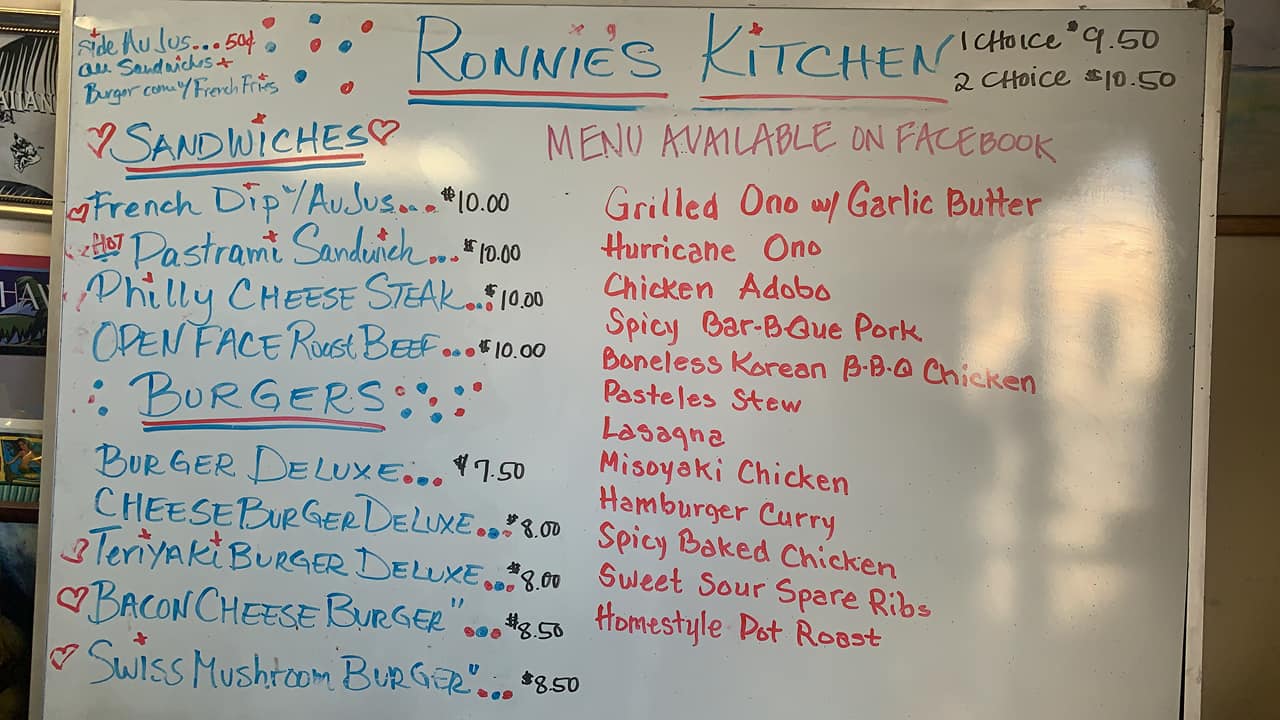 Side Au Jus...50¢
All Sandwiches +
Burger come w/ French Fries
RONNIE'S KITCHEN
1 CHOICE $9.50
2 CHOICE $10.50
SANDWICHES
French Dip w/ Au Jus... $10.00
HOT Pastrami Sandwich... $10.00
Philly CHEESE STEAK... $10.00
OPEN FACE Roast BEEF... $10.00
BURGERS
BURGER DELUXE... $7.50
CHEESE BURGER DELUXE... $8.00
TeriyaKi BURGER DELUXE... $8.00
BACON CHEESE BURGER "... $8.50
SWiss Mushroom BURGER "... $8.50
MENU AVAILABLE ON FACEBOOK
Grilled Ono w/ Garlic Butter
Hurricane Ono
Chicken Adobo
Spicy Bar-B-Que Pork
Boneless Korean B-B-Q Chicken
Pasteles Stew
Lasagna
Misoyaki Chicken
Hamburger Curry
Spicy Baked Chicken
Sweet Sour Spare Ribs
Homestyle Pot Roast